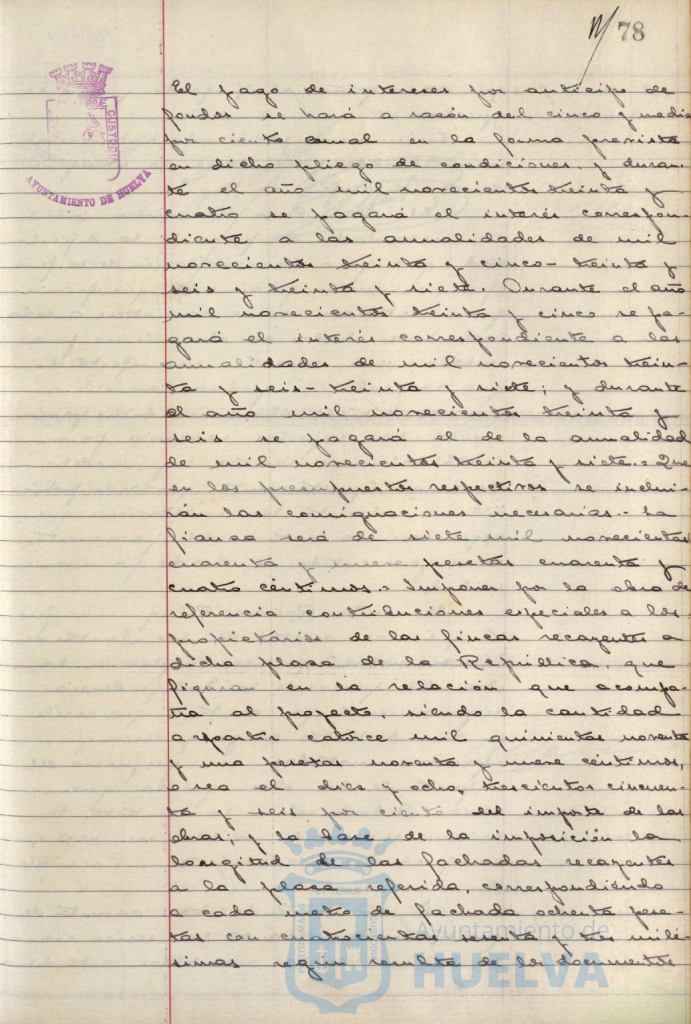 78
El pago de intereses por anticipo de
fondos se hará a razón del cinco y medio
por ciento anual en la forma prevista
en dicho pliego de condiciones, y duran-
te el año mil novecientos treinta y
cuatro se pagará el interés correspon-
diente a las anualidades de mil
novecientos treinta y cinco - treinta y
seis y treinta y siete. Durante el año
mil novecientos treinta y cinco se pa-
gará el interés correspondiente a las
anualidades de mil novecientos trein-
ta y seis - treinta y siete; y durante
el año mil novecientos treinta y
seis se pagará el de la anualidad
de mil novecientos treinta y siete.= Que
en los presupuestos respectivos se inclui-
rán las consignaciones necesarias.- La
fianza será de siete mil novecientas
cuarenta y nueve pesetas cuarenta y
cuatro céntimos.= Imponer por la obra de
referencia contribuciones especiales a los
propietarios de las fincas recayentes a
dicha plaza de la República, que
figuran en la relación que acompa-
ña al proyecto, siendo la cantidad
a repartir catorce mil quinientas noventa
y una pesetas noventa y nueve céntimos,
o sea el diez y ocho, trescientos cincuen-
ta y seis por ciento del importe de las
obras; y la base de la imposición la
longitud de las fachadas recayentes
a la plaza referida, correspondiendo
a cada metro de fachada ochenta pese-
tas con cuatrocientas sesenta y tres milé-
simas según resulta de los documentos
CUSTODIA
AYUNTAMIENTO DE HUELVA
Ayuntamiento de
HUELVA